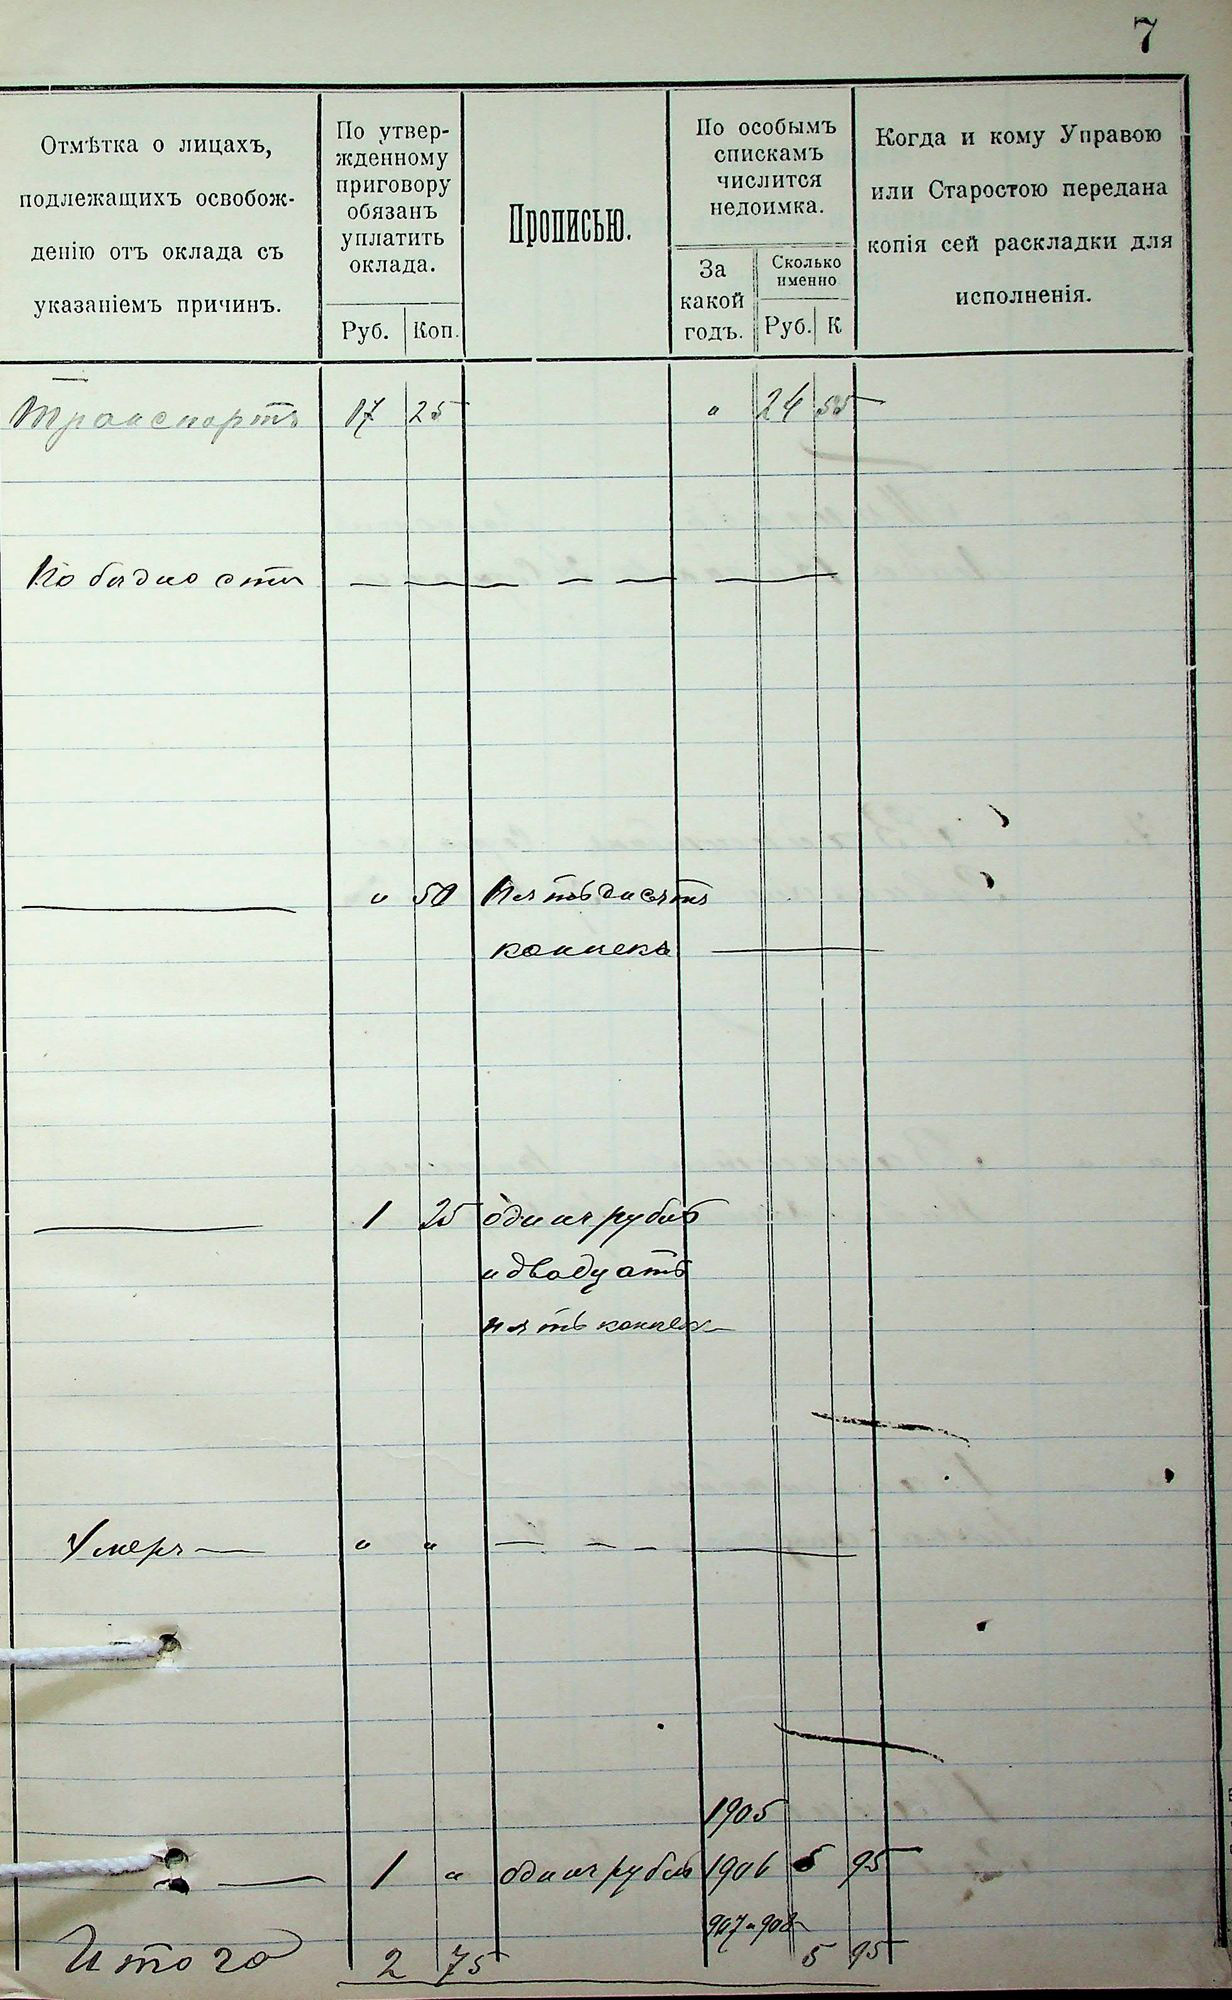 7
Отмѣтка о лицахъ,
подлежащихъ освобож-
денію отъ оклада съ
указаніемъ причинъ.
По утвер-
жденному
приговору
обязанъ
уплатить
оклада.
Руб. Коп.
Прописью.
По особымъ
спискамъ
числится
недоимка.
За
какой
годъ.
Сколько
именно
Руб. К
Когда и кому Управою
или Старостою передана
копія сей раскладки для
исполненія.
Транспортъ 17 25 " 24 55
По бѣдности — — — — — —
— " 50 Пятьдесятъ
копѣекъ —
— 1 25 одинъ рубль
и двадцать
пять копѣек
Умеръ — " " — — — —
1905
— 1 " одинъ рубль 1906 5 95
907 и 908
Итого 2 75 5 95